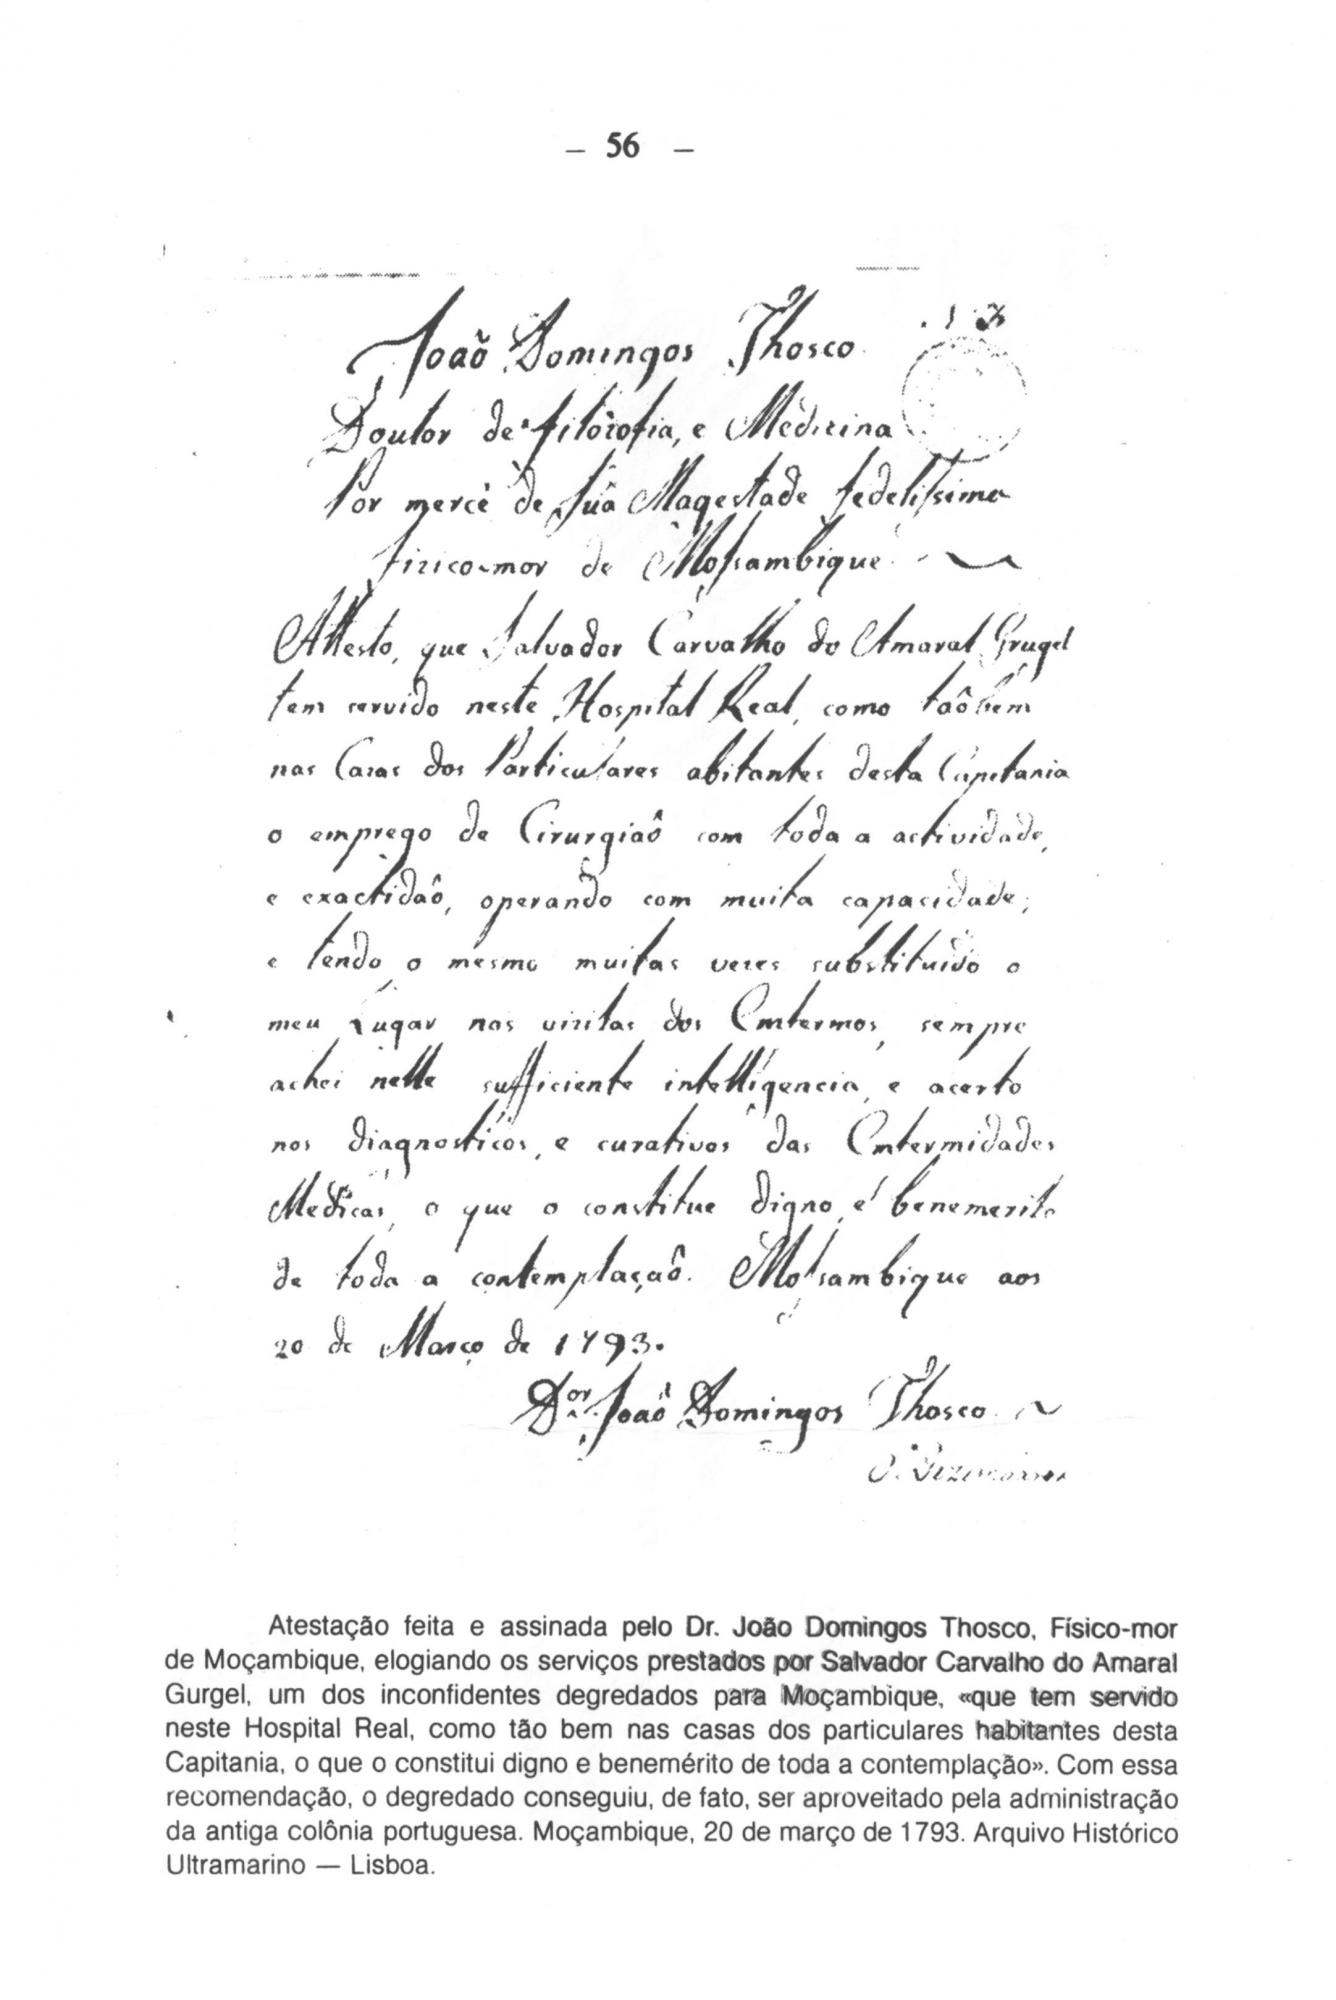 – 56 –
João Domingos Thosco
Doutor de filôzofia, e Medicina
Por mercê de Suâ Magestade fedelissima
fizico-mor de Mossambique
Attesto, que Salvador Carvalho do Amaral Grugel
tem servido neste Hospital Real, como taôbem
nas Cazas dos Particulares abitantes desta Capitania
o emprego de Cirurgiaô com toda a actividade,
e exactidaô, operando com muita capacidade;
e tendo o mesmo muitas vezes substituido o
meu Lugar nas vizitas dos Emfermos, sempre
achei nelle sufficiente intelligencia, e acerto
nos diagnosticos, e curativos das Emfermidades
Medicas, o que o constitue digno, é benemerito
de toda a contemplaçaô. Mossambique aos
20 de Março de 1793.
Dor. Joaô Domingos Thosco
Atestação feita e assinada pelo Dr. João Domingos Thosco, Físico-mor
de Moçambique, elogiando os serviços prestados por Salvador Carvalho do Amaral
Gurgel, um dos inconfidentes degredados para Moçambique, «que tem servido
neste Hospital Real, como tão bem nas casas dos particulares habitantes desta
Capitania, o que o constitui digno e benemérito de toda a contemplação». Com essa
recomendação, o degredado conseguiu, de fato, ser aproveitado pela administração
da antiga colônia portuguesa. Moçambique, 20 de março de 1793. Arquivo Histórico
Ultramarino — Lisboa.